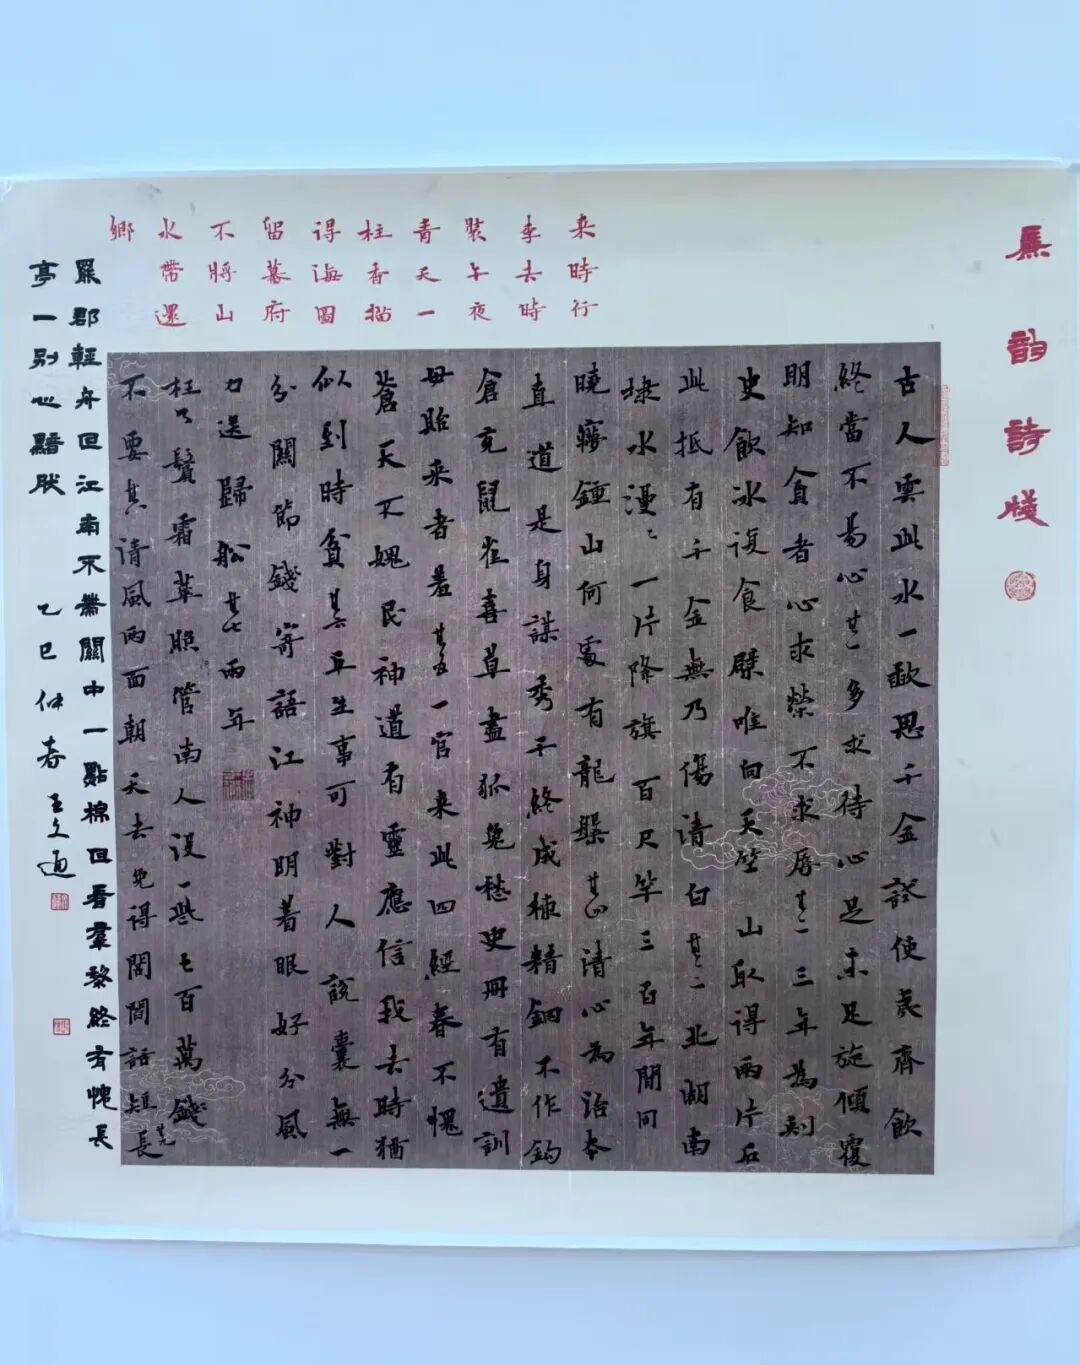 廉韵詩牋
来時行
李去時
裝午夜
青天一
柱香描
得海圖
留幕府
不將山
水帶還
鄉
古人雲此水一歃思千金試使夷齊飲
終當不易心其一多求待心足未足旋傾覆
明知貪者心求榮不求辱其二三年為刺
史飲冰復食檗唯向天竺山取得兩片石
此抵有千金無乃傷清白其三北湖南
埭水漫漫一片降旗百尺竿三百年間同
曉夢鍾山何處有龍蟠其四清心為治本
直道是身謀秀干終成棟精鋼不作鈎
倉充鼠雀喜草盡狐兔愁史冊有遺訓
毋貽来者羞其五一官来此四經春不愧
蒼天不媿民神道有靈應信我去時猶
似到時貧其六五生事可對人説囊無一
分關節錢寄語江神明着眼好分風
力送歸船其七兩年
枉了鬢霜華照管南人沒一些七百萬錢
不要其清風兩面朝天去免得閭閻話短長其八
罷郡輕舟回江南不帶關中一點棉回看羣黎終有愧長
亭一别心黯然 乙巳仲春 王文通